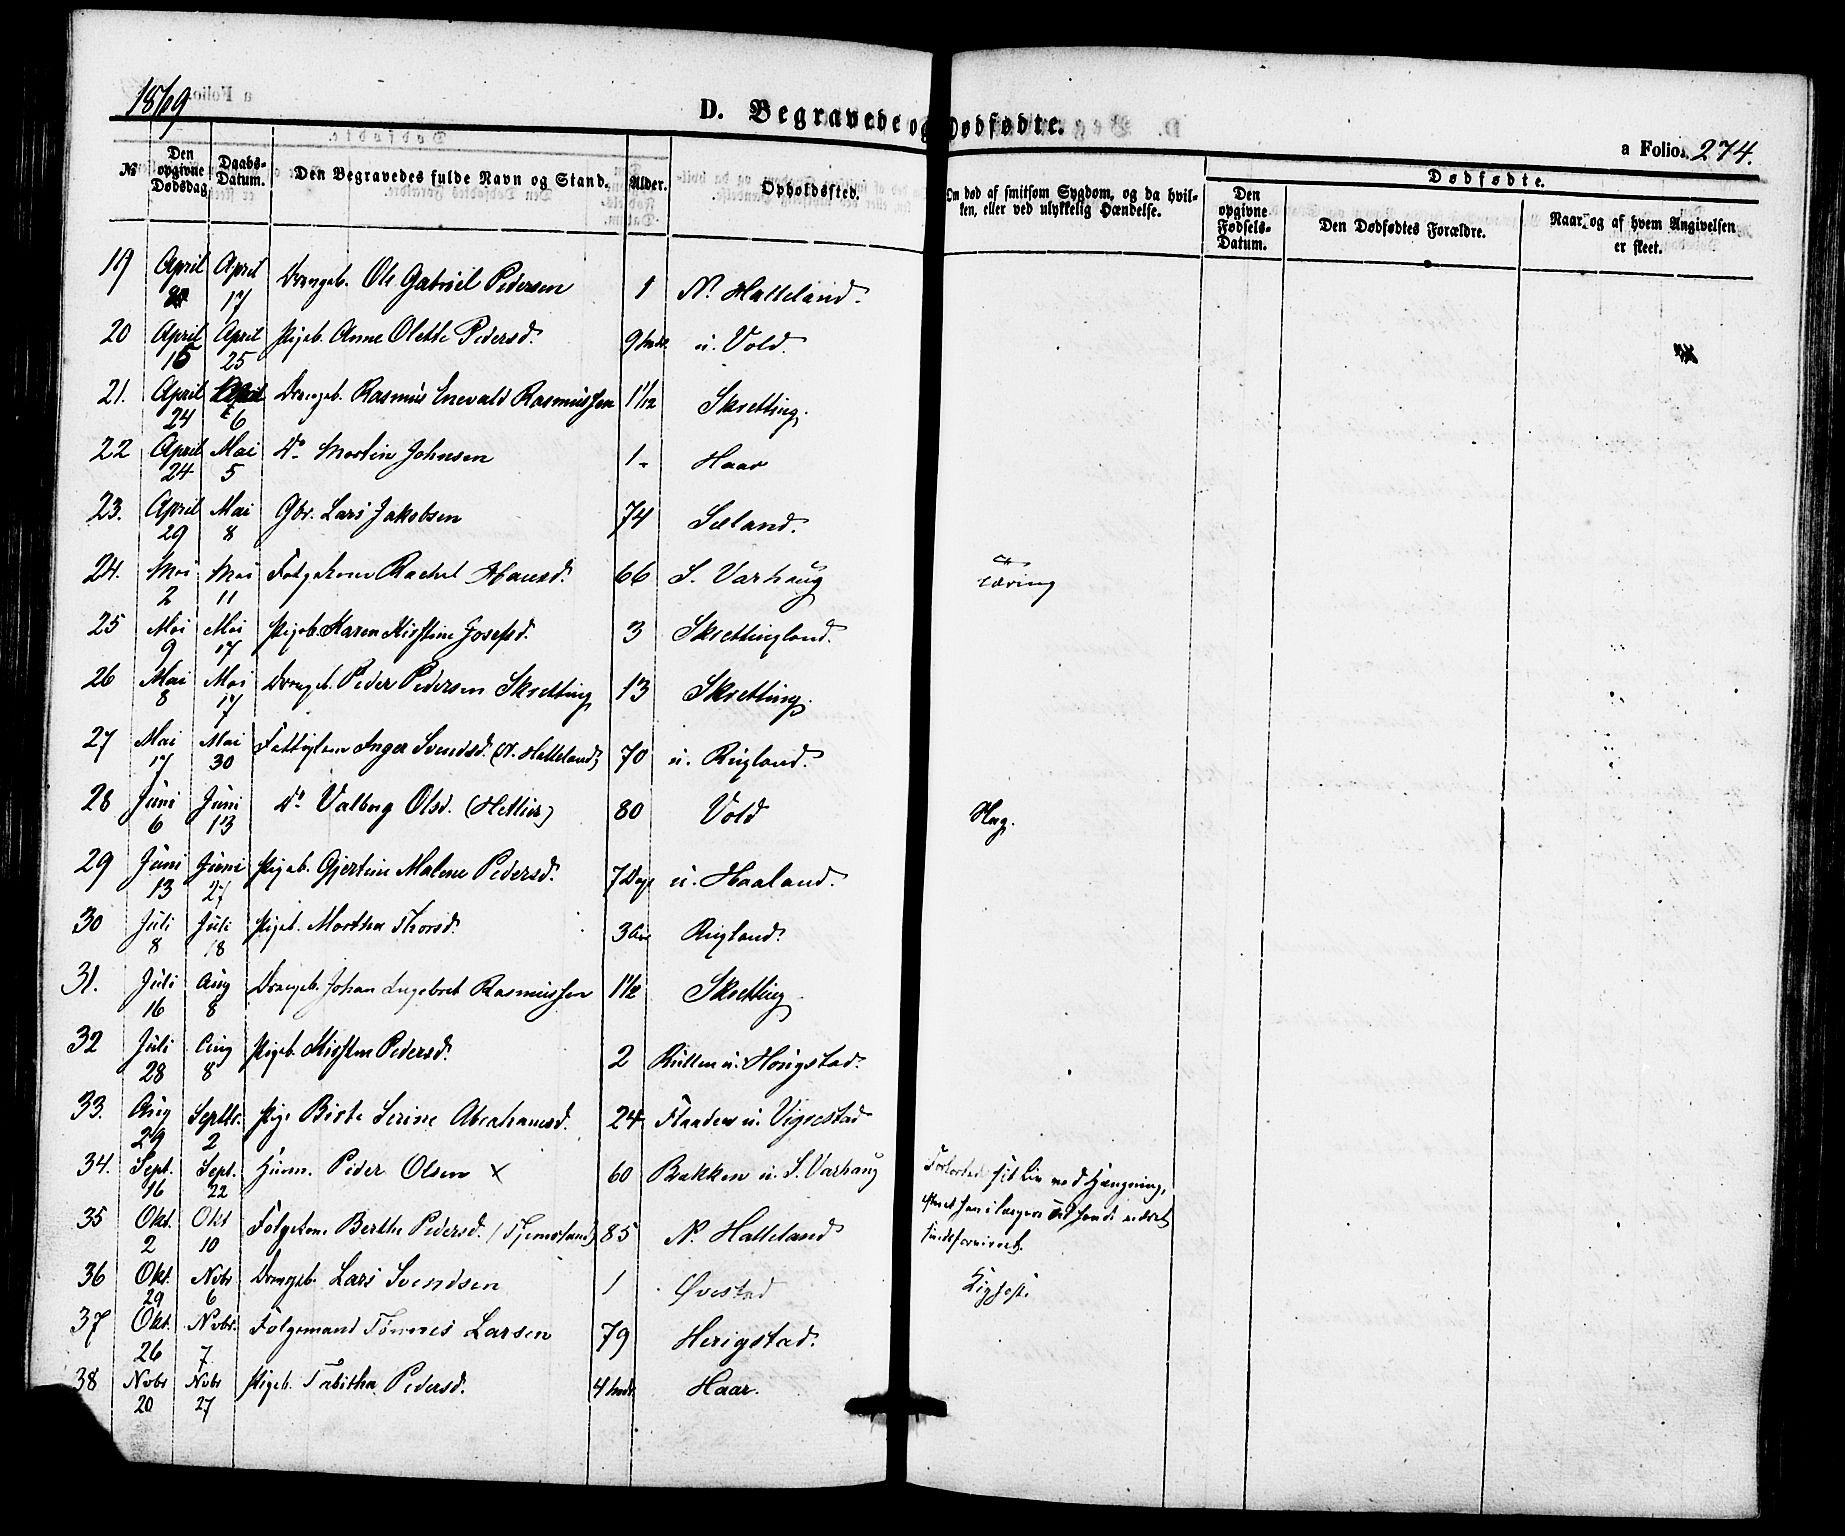 1869
D. Begravede og Dødfødte.
a Folio. 274.
No
Den opgivne Dødsdag.
Daabs-Datum.
Den Begravedes fulde Navn og Stand.
Alder.
Opholdssted.
Om død af smitsom Sygdom, og da hvilken, eller ved ulykkelig Hændelse.
Dødfødte.
Den opgivne Fødsels-Datum.
Den Dødfødtes Forældre.
Naar, og af hvem Angivelsen er skeet.
19 April April 17 Drengeb. Ole Gabriel Pedersen 1 N. Hatteland.
20 April 15 April 25 Pigeb. Anne Olette Pedersd. 9 Mdr. u. Vold.
21. April 24 6 Drengeb. Rasmus Enevald Rasmussen 1 1/12 Skretting.
22 April 24 Mai 5 Do Martin Johnsen 1 Haar
23. April 29 Mai 8 Gbr. Lars Jakobsen 74 Sæland.
24. Mai 2 Mai 11 Folgekone Rachel Hansd. 66 S. Varhaug Tæring
25 Mai 9 Mai 17 Pigeb. Karen Kirstine Josefsd. 3 Skrettingland.
26 Mai 8 Mai 17 Drengeb. Peder Pedersen Skretting 13 Skretting.
27 Mai 17 Mai 30 Fattiglem Inger Svendsd. (N. Hatteland) 70 u. Rugland.
28 Juni 6 Juni 13 Do Valborg Olsd. 80 Vold
29 Juni 13 Juni 27 Pigeb. Gjertine Malene Pedersd. 7 Dage u. Haaland.
30 Juli 8 Juli 18 Pigeb. Martha Thorsd. 3 Rugland.
31. Juli 16 Aug 8 Drengeb. Johan Ingebret Rasmussen 1 1/2 Skretting
32 Juli 28 Aug 8 Pigeb. Kirsten Pedersd. 2 u. Hougstad.
33. Aug 29 Septbr. 2 Pige Birte Serine Abrahamsd. 24 u. Vigrestad
34. Sept. 16 Sept. 22 Huusm. Peder Olsen x 60 Bakken u. S. Varhaug sit Liv ved Hængning,
35 Okt. 2 Okt 10 Folgekone Berthe Pedersd. 85 N. Hatteland
36 Okt 29 Nvbr 6 Drengeb. Lars Svendsen 1 Øvestad
37 Okt. 26 Nvbr. 7 Folgemand Tønnes Larsen 79 Herigstad.
38 Nvbr 20 Nvbr 27 Pigeb. Tabitha Pedersd. 4 Mdr. Haar.